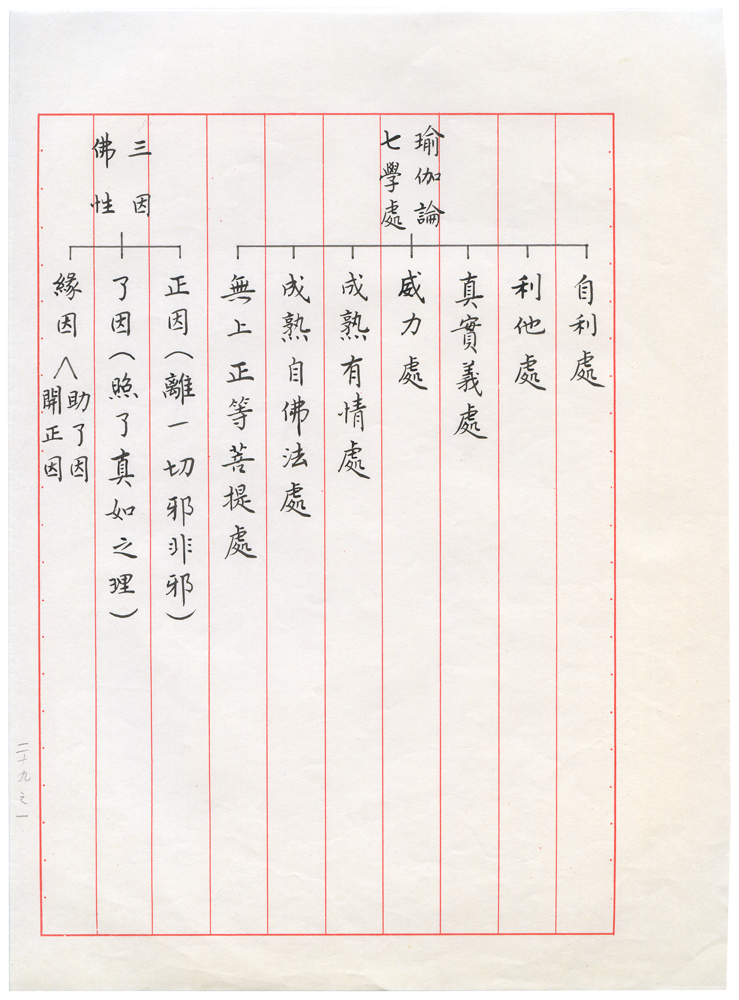 瑜伽論
七學處
自利處
利他處
真實義處
威力處
成熟有情處
成熟自佛法處
無上正等菩提處
三因
佛性
正因(離一切邪非邪)
了因(照了真如之理)
緣因
助了因
開正因
二十九之一